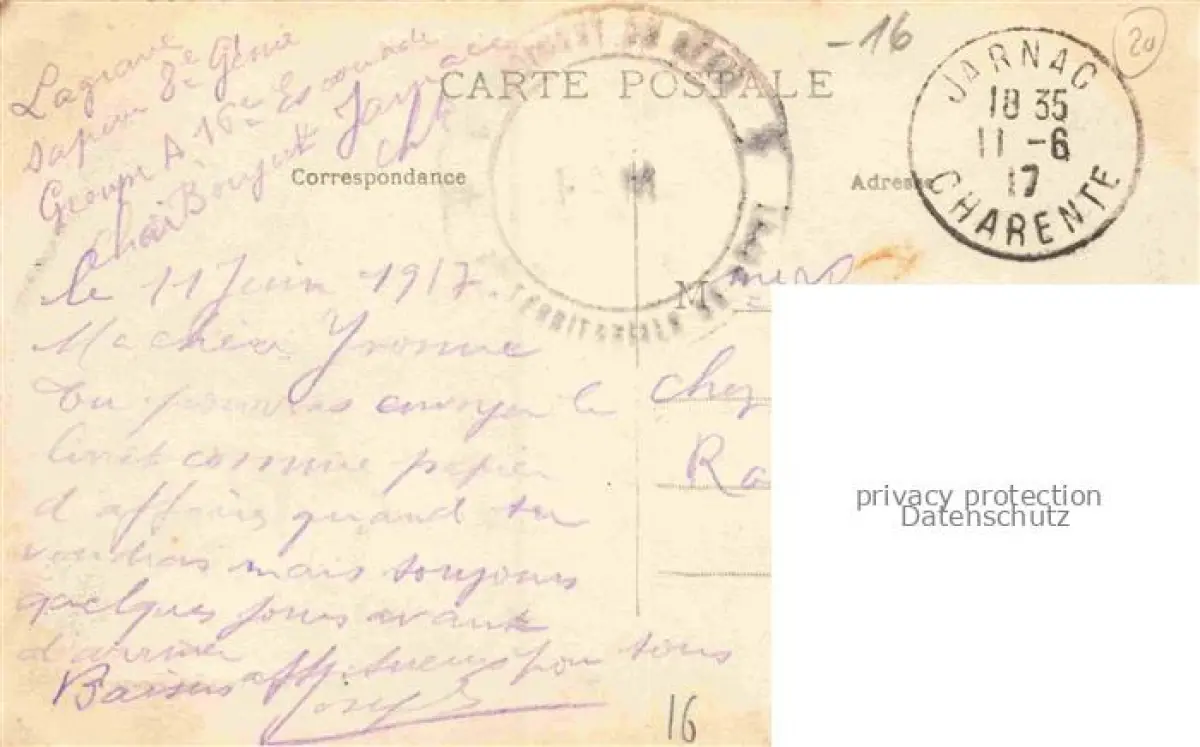 Lagrange
Sapeur 8e Génie
Groupe A 16e Escouade
Chai Jarnac
Chte
CARTE POSTALE
-16
20
JARNAC
18 35
11 -6
17
CHARENTE
Correspondance
Adresse
TERRITORIALE
le 11 Juin 1917.
Ma chère Yvonne
Tu pourras envoyer le
livret comme papier
d affaires quand tu
voudras mais toujours
quelques jours avant
d'arriver
Baisers affectueux pour tous
Joseph
M
chez
Ra
privacy protection
Datenschutz
16